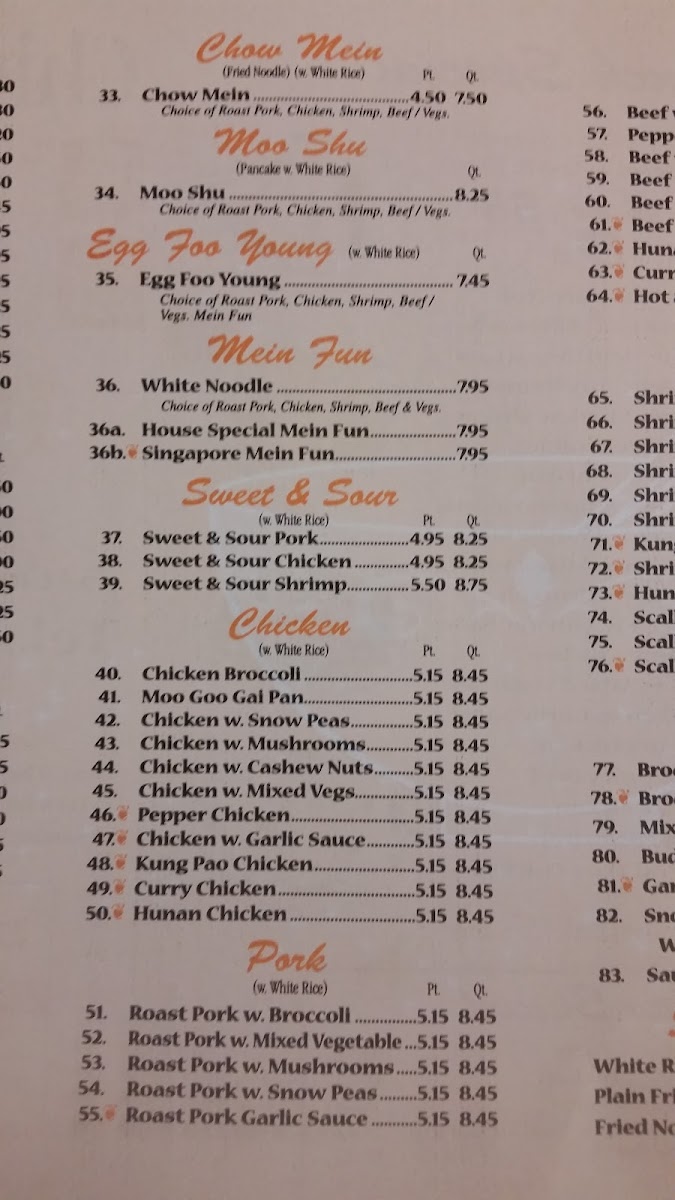 Chow Mein
(Fried Noodle) (w. White Rice) Pt. Qt.
33. Chow Mein ........................................4.50 7.50
Choice of Roast Pork, Chicken, Shrimp, Beef / Vegs.
Moo Shu
(Pancake w. White Rice) Qt.
34. Moo Shu ....................................................8.25
Choice of Roast Pork, Chicken, Shrimp, Beef / Vegs.
Egg Foo Young (w. White Rice) Qt.
35. Egg Foo Young ....................................... 7.45
Choice of Roast Pork, Chicken, Shrimp, Beef /
Vegs. Mein Fun
Mein Fun
36. White Noodle ..........................................7.95
Choice of Roast Pork, Chicken, Shrimp, Beef & Vegs.
36a. House Special Mein Fun....................7.95
36b. Singapore Mein Fun............................7.95
Sweet & Sour
(w. White Rice) Pt. Qt.
37. Sweet & Sour Pork.....................4.95 8.25
38. Sweet & Sour Chicken .............4.95 8.25
39. Sweet & Sour Shrimp...............5.50 8.75
Chicken
(w. White Rice) Pt. Qt.
40. Chicken Broccoli ..........................5.15 8.45
41. Moo Goo Gai Pan.........................5.15 8.45
42. Chicken w. Snow Peas...............5.15 8.45
43. Chicken w. Mushrooms...........5.15 8.45
44. Chicken w. Cashew Nuts.........5.15 8.45
45. Chicken w. Mixed Vegs.............5.15 8.45
46. Pepper Chicken............................5.15 8.45
47. Chicken w. Garlic Sauce...........5.15 8.45
48. Kung Pao Chicken.......................5.15 8.45
49. Curry Chicken................................5.15 8.45
50. Hunan Chicken .............................5.15 8.45
Pork
(w. White Rice) Pt. Qt.
51. Roast Pork w. Broccoli ..............5.15 8.45
52. Roast Pork w. Mixed Vegetable ...5.15 8.45
53. Roast Pork w. Mushrooms.....5.15 8.45
54. Roast Pork w. Snow Peas.........5.15 8.45
55. Roast Pork Garlic Sauce ...........5.15 8.45
56. Beef
57.
58. Beef
59. Beef
60. Beef
61. Beef
62.
63.
64. Hot
65.
66.
67.
68.
69.
70.
71.
72.
73.
74.
75.
76.
77.
78.
79.
80.
81.
82.
83.
White
Plain
Fried